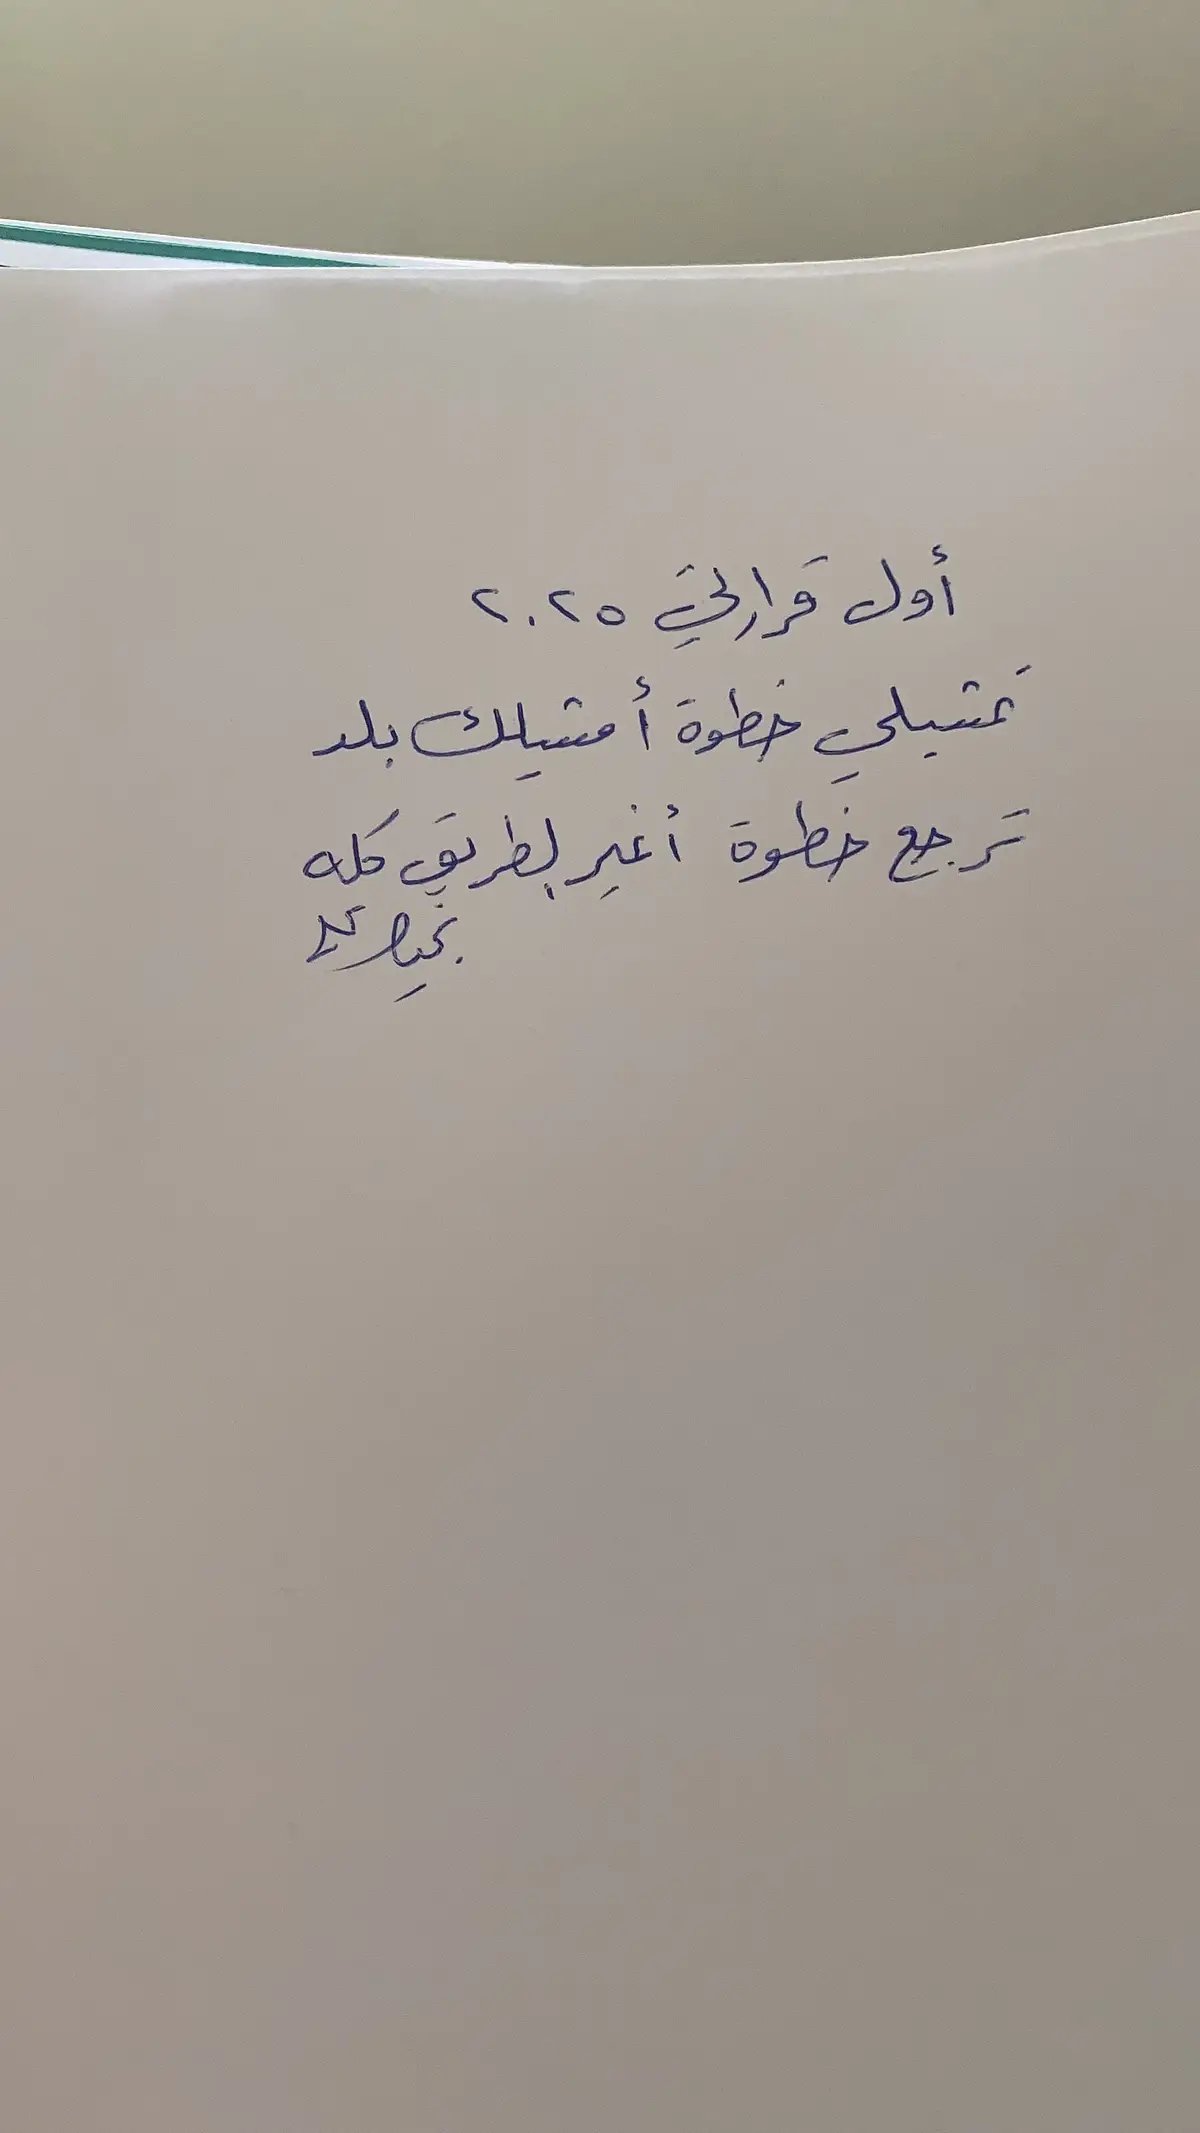 أول قراراتي ٢٠٢٥
تمشيلي خطوة أمشيلك بلد
ترجع خطوة أغير لطريق كله